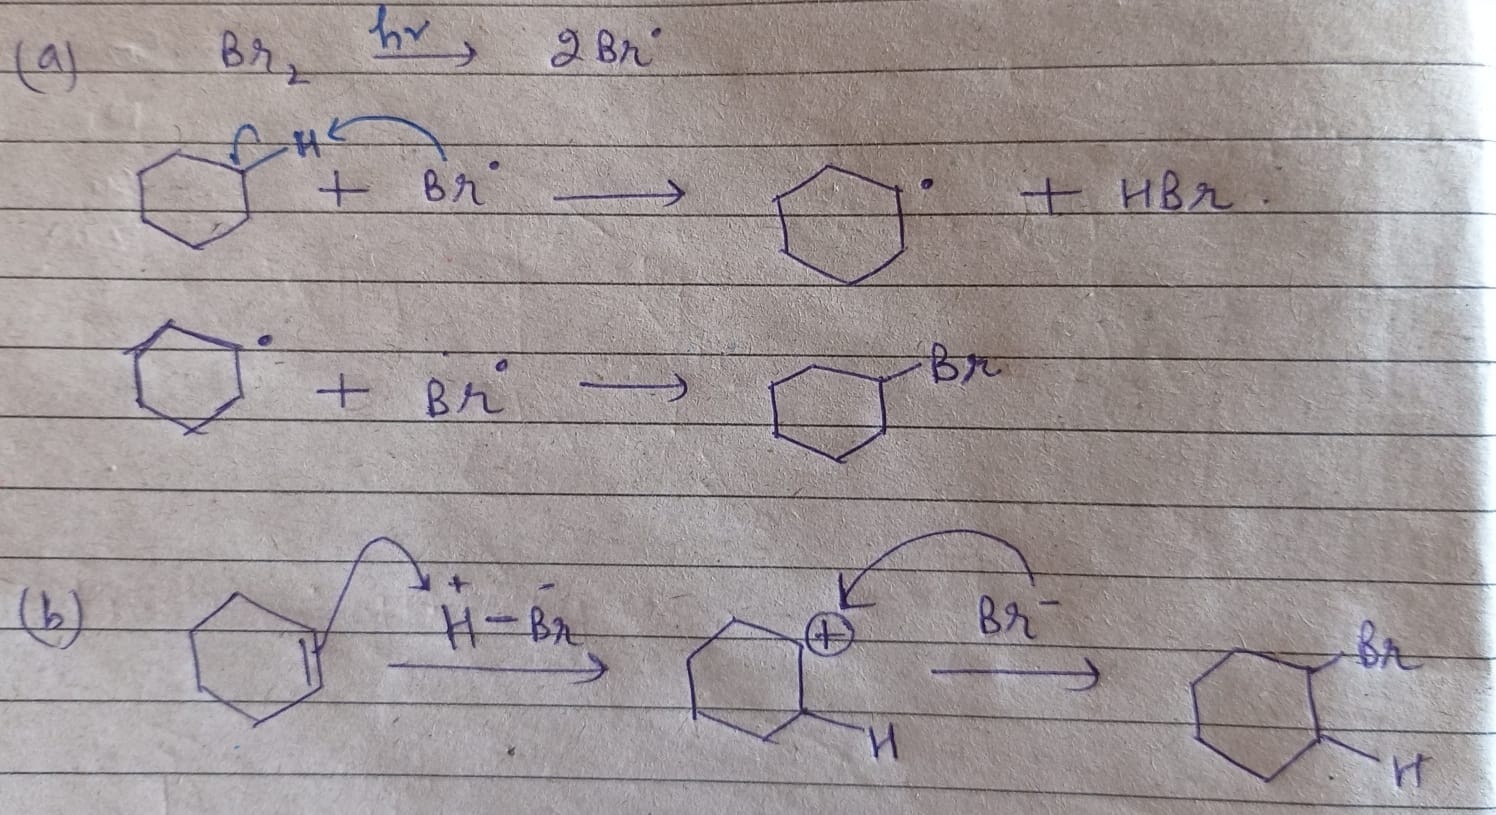 (a) Br₂ hν → 2Br•
H + Br• → • + HBr.
• + Br• → Br
(b) + - H-Br → ⊕ H Br⁻ → Br H